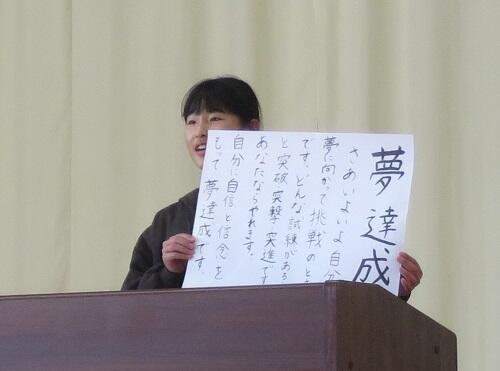 夢達成
さあいよいよ自分
夢に向かって挑戦のと
です。どんな試練があろ
と突破突撃突進で
あなたならやれます。
自分に自信と信念を
もって夢達成です。